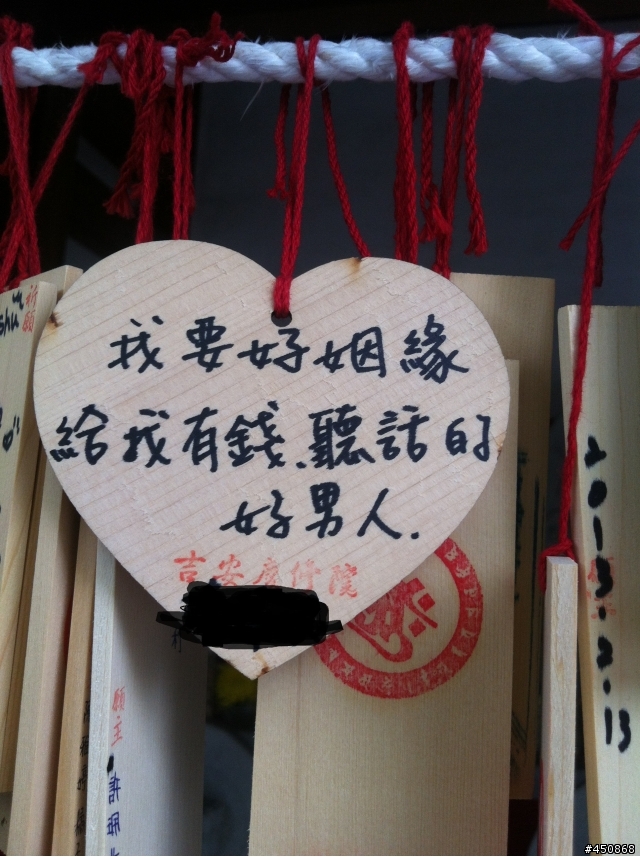 我要好姻緣
給我有錢、聽話的
好男人.
吉安慶修院
祈願
shu
願主
2013.2.13
#450868